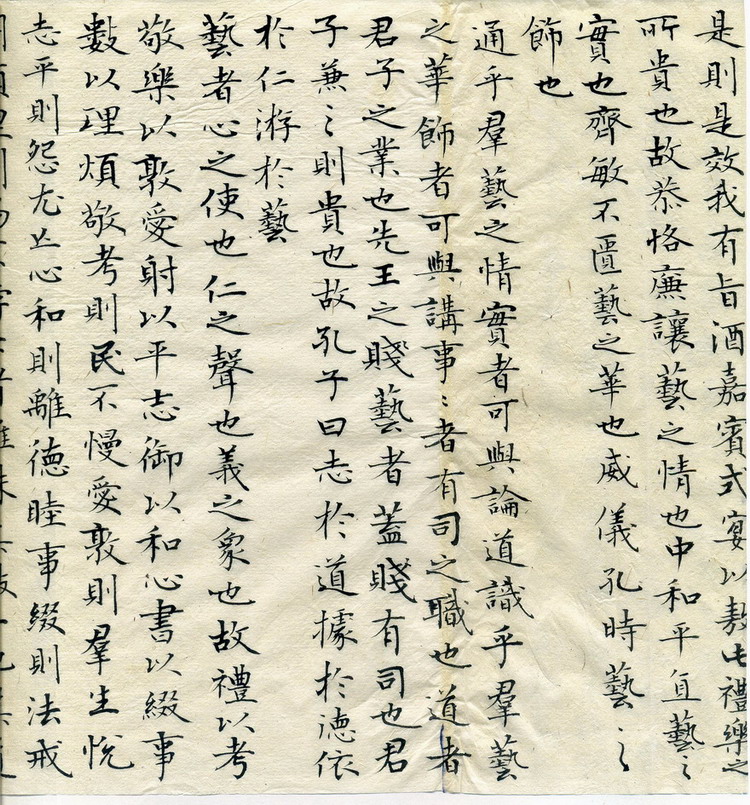 是則是效我有旨酒嘉賓式宴以敖此禮樂之
所貴也故恭恪廉讓藝之情也中和平直藝々
實也齊敏不匱藝之華也威儀孔時藝之
飾也
通乎羣藝之情實者可與論道識乎羣藝
之華飾者可與講事々者有司之職也道者
君子之業也先王之賤藝者蓋賤有司也君
子兼之則貴也故孔子曰志於道據於德依
於仁游於藝
藝者心之使也仁之聲也義之象也故禮以考
敬樂以敦愛射以平志御以和心書以綴事
數以理煩敬考則民不慢愛敦則羣生悅
志平則怨尤亡心和則離德睦事綴則法戒